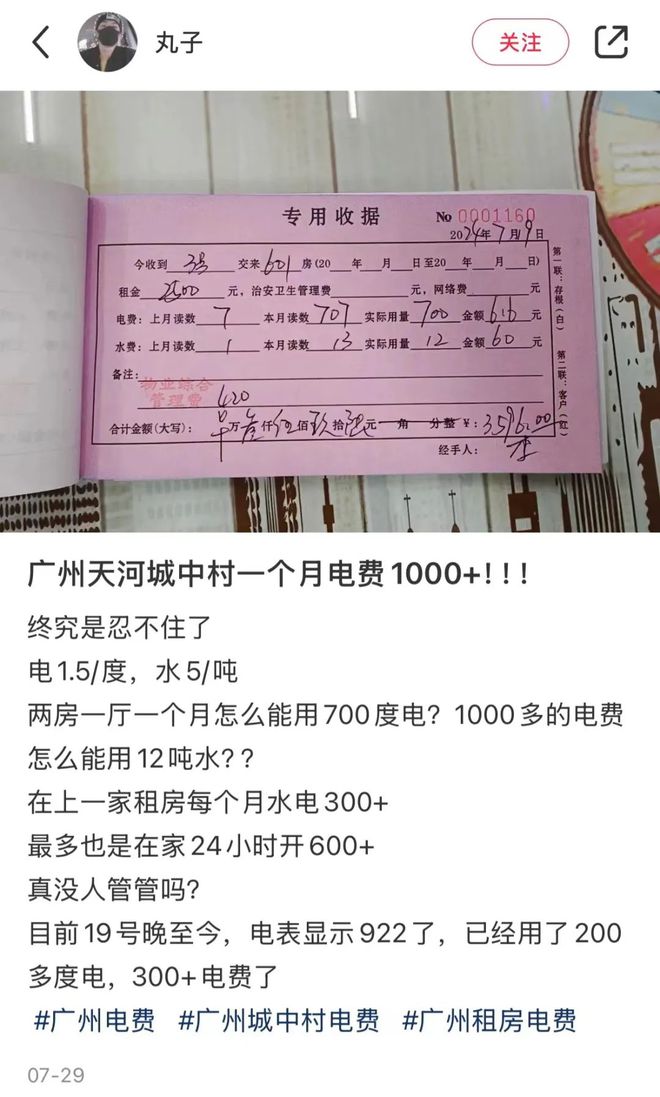 丸子
关注
专用收据
No 0001160
2024年7月19日
今收到 交来601房(20 年 月 日至20 年 月 日)
租金2500元，治安卫生管理费 元，网络费 元
电费：上月读数 7 本月读数 707 实际用量 700 金额 616 元
水费：上月读数 1 本月读数 13 实际用量 12 金额 60 元
备注：
物业综合
管理费
420
合计金额(大写)： 万叁仟伍佰玖拾 元 角 分整 ¥：3596.00
经手人：
第一联：存根(白)
第二联：客户(红)
广州天河城中村一个月电费1000+！！！
终究是忍不住了
电1.5/度，水5/吨
两房一厅一个月怎么能用700度电？1000多的电费
怎么能用12吨水？？
在上一家租房每个月水电300+
最多也是在家24小时开600+
真没人管管吗？
目前19号晚至今，电表显示922了，已经用了200
多度电，300+电费了
#广州电费 #广州城中村电费 #广州租房电费
07-29